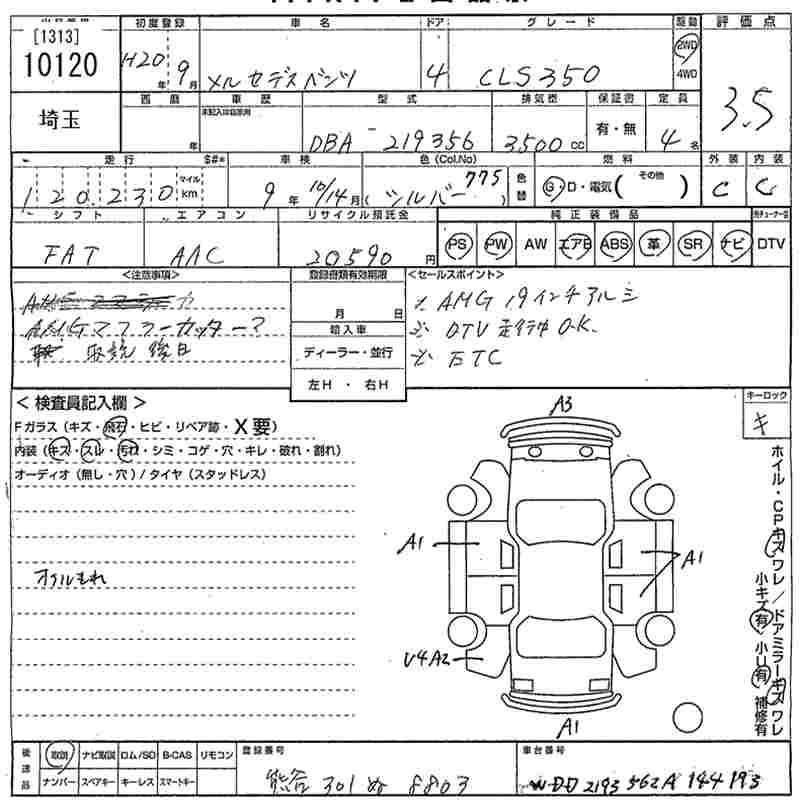 [1313]
10120
埼玉
初度登録 車名 ドア グレード 駆動 評価点
H20年9月 メルセデスベンツ 4 CLS350 2WD 4WD 3.5
西暦 車歴 型式 排気量 保証書 定員
年 未記入は自家用 DBA-219356 3500cc 有・無 4名
走行 S#* 車検 色(Col.No) 燃料 外装 内装
120,230 マイル km 9年10/14月 (シルバー 775) 色替 G・D・電気( その他 ) C C
シフト エアコン リサイクル預託金 純正装備品
FAT AAC 20590円 PS PW AW エアB ABS 革 SR ナビ DTV
<注意事項> 登録書類有効期限 <セールスポイント>
月 日
AMGマフラーカッター?
取説 後日
輸入車
ディーラー・並行
左H・右H
※ AMG 19インチアルミ
※ DTV 走行中 O.K.
※ ETC
<検査員記入欄>
Fガラス(キズ・飛石・ヒビ・リペア跡・X要)
内装(キズ・スレ・汚れ・シミ・コゲ・穴・キレ・破れ・割れ)
オーディオ(無し・穴)/タイヤ(スタッドレス)
オイルもれ
キーロック
キ
A3
A1
A1
U4A2
A1
ホイル・CPキズワレ/ドアミラーキズワレ
小キズ有、小U有、補修有
後送品 取説 ナビ取説 ロム/SD B-CAS リモコン
ナンバー スペアキー キーレス スマートキー
登録番号
熊谷 301 ぬ 8803
車台番号
WDD2193562A144193